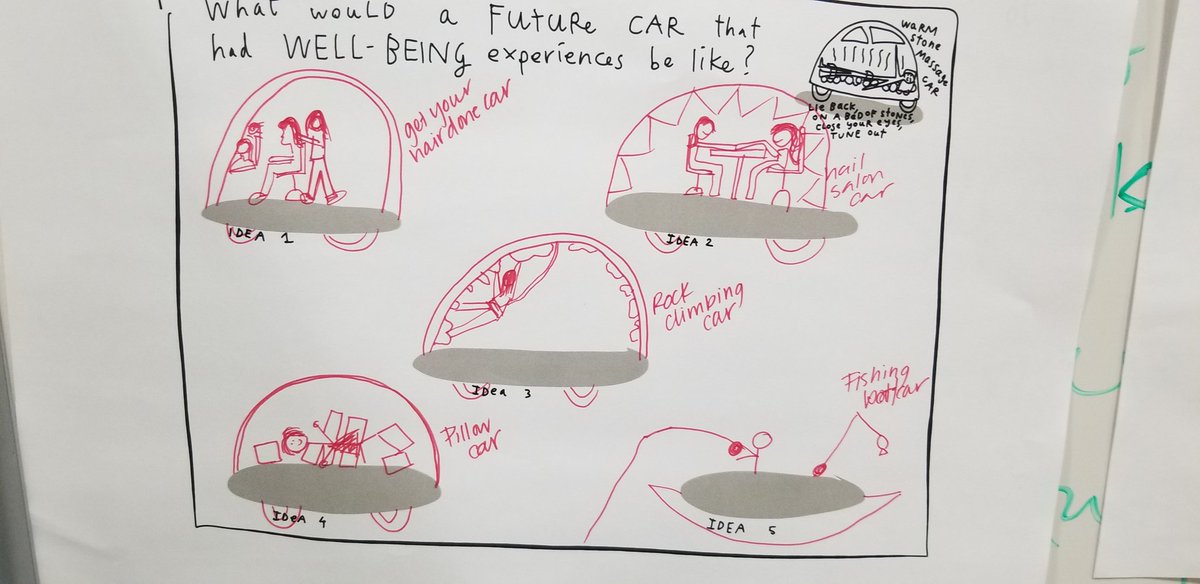 What would a FUTURE CAR that
had WELL-BEING experiences be like?
WARM
STONE
MASSAGE
CAR
Lie BACK,
ON A BED OF STONES,
CLOSE YOUR EYES,
TUNE OUT
get your
hair done car
IDEA 1
nail
salon
car
IDEA 2
Rock
climbing
car
IDea 3
Pillow
car
IDeA 4
Fishing
boat car
IDEA 5
K